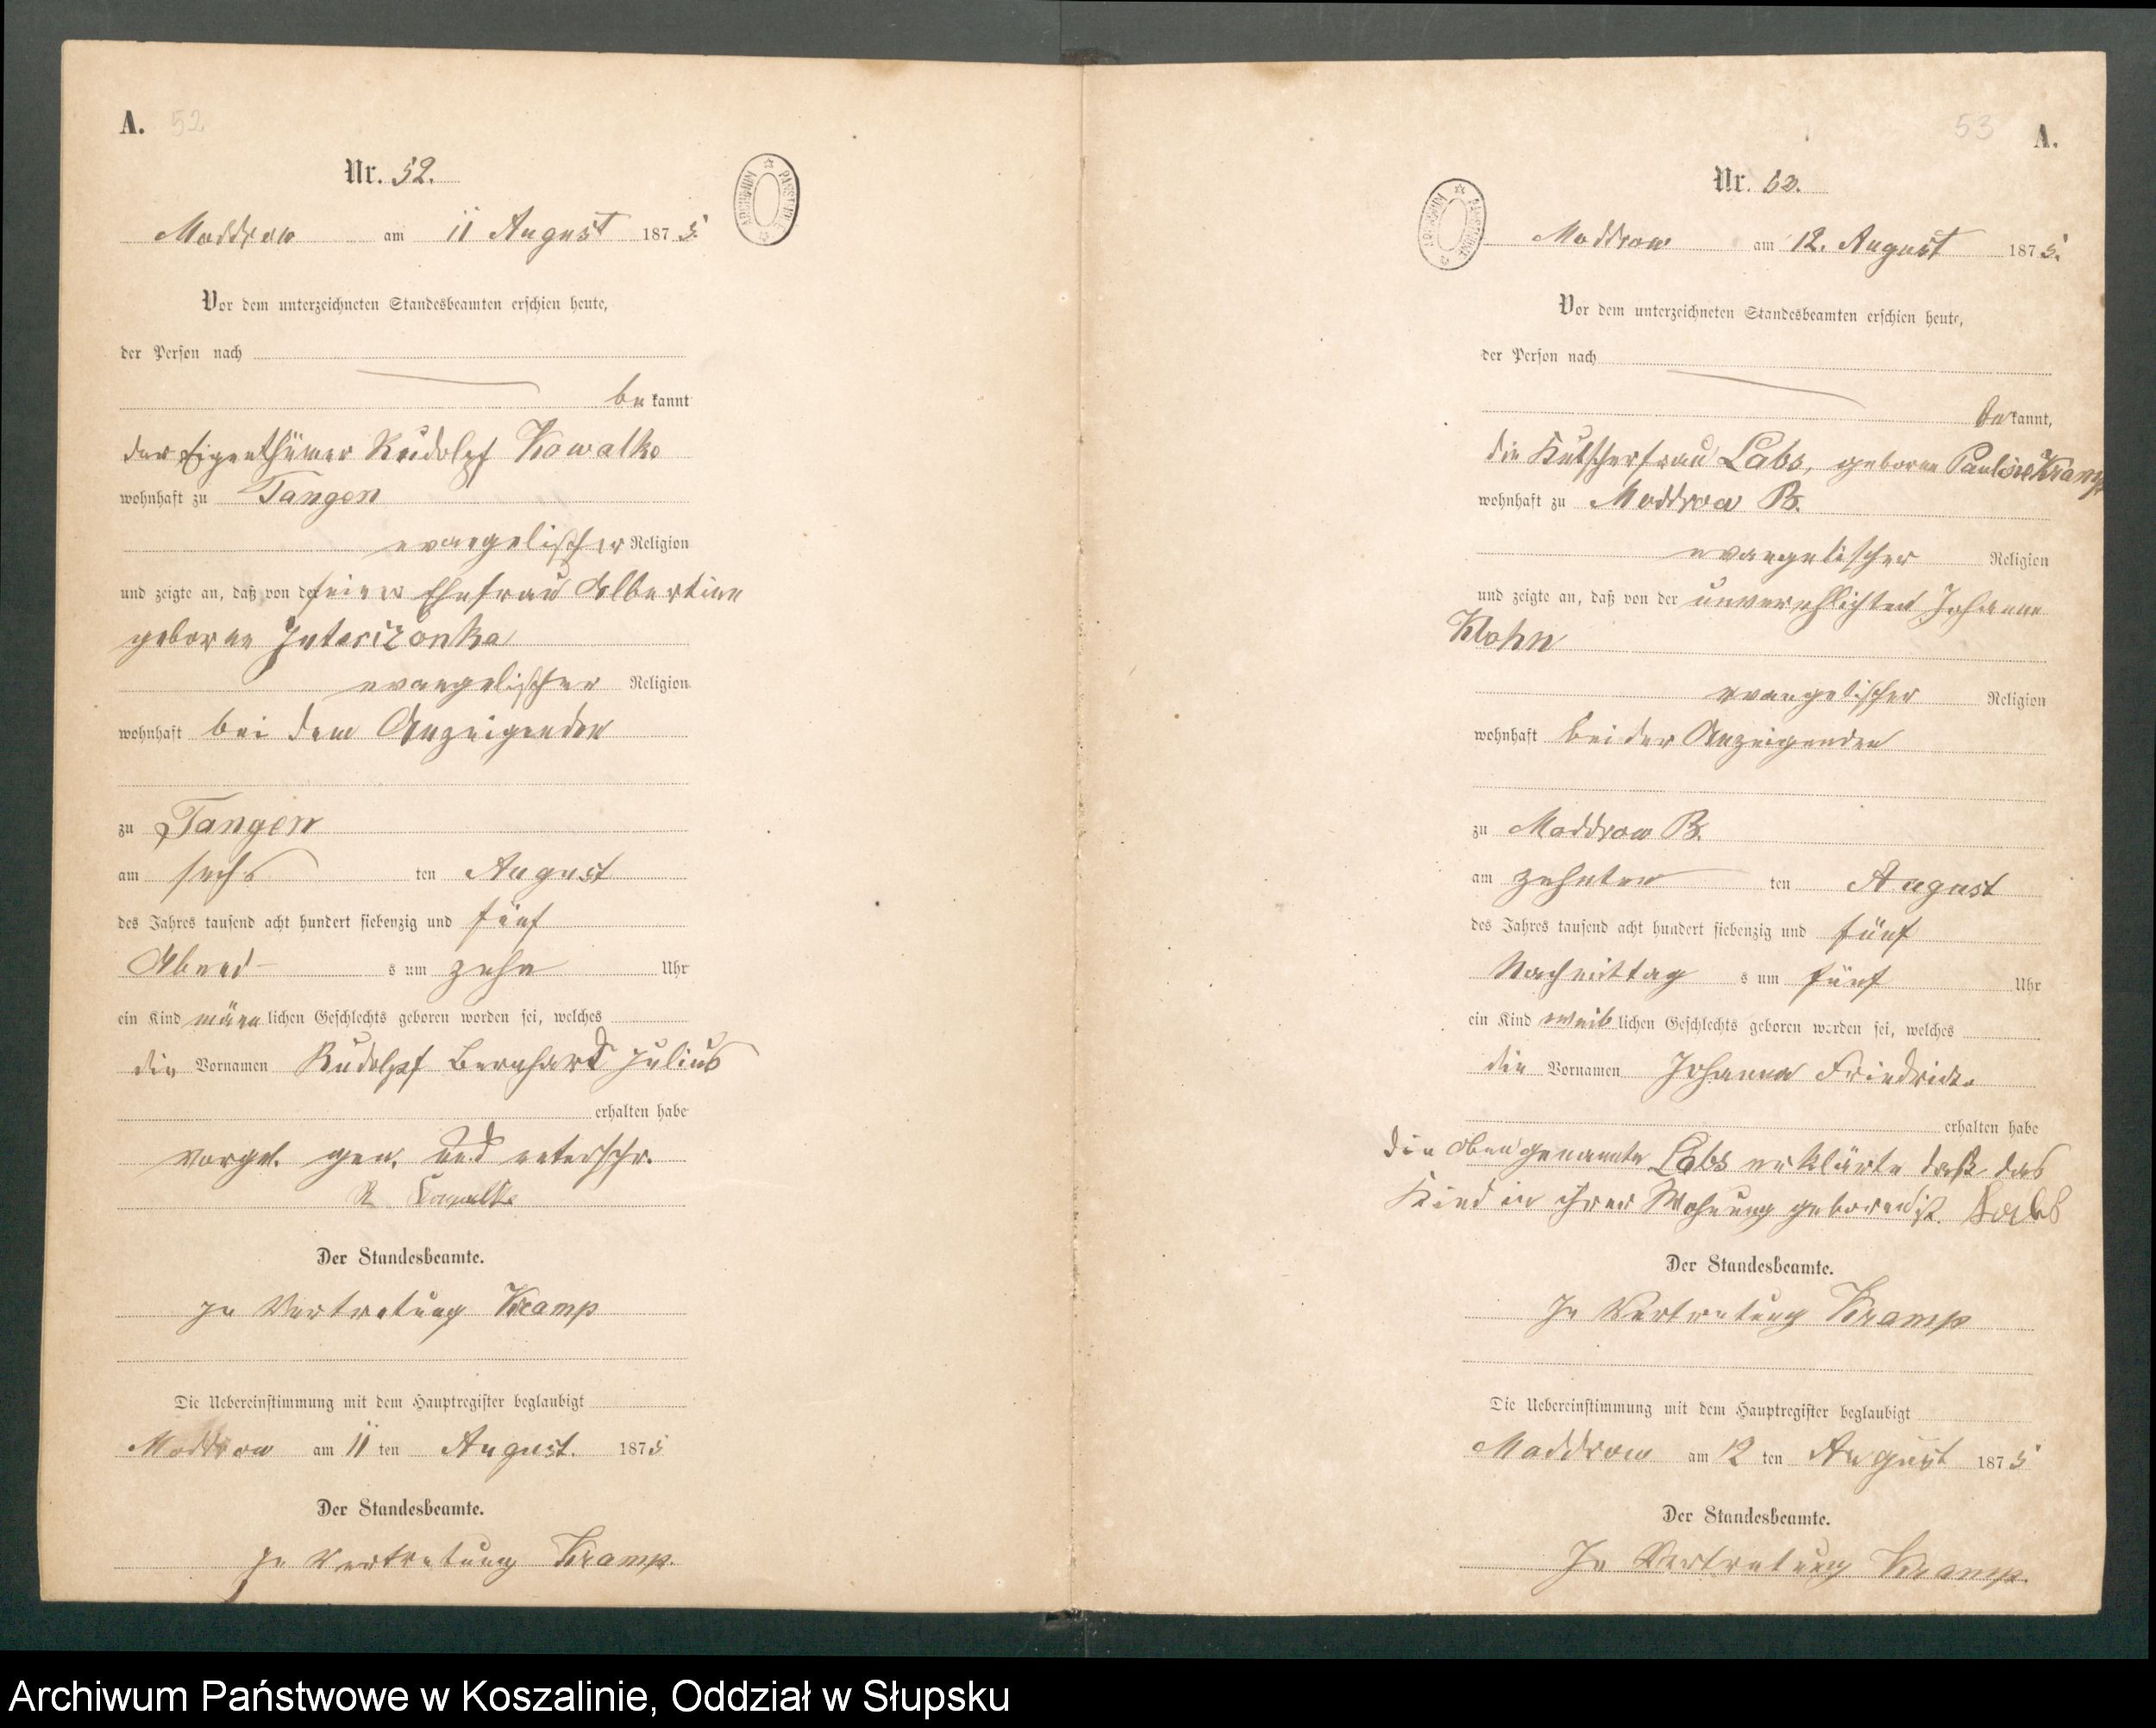 A. 52
Nr. 52.
Moddrow am 11 August 1875.
Vor dem unterzeichneten Standesbeamten erschien heute,
der Person nach
be kannt
der Eigenthümer Rudolpf Kowalke
wohnhaft zu Tangen
evangelischer Religion
und zeigte an, daß von der seiner Ehefrau Albertine
geborne
evangelischer Religion
wohnhaft bei dem Anzeigenden
zu Tangen
am sechs ten August
des Jahres tausend acht hundert siebenzig und fünf
Abend s um zehn Uhr
ein Kind männ lichen Geschlechts geboren worden sei, welches
die Vornamen Rudolpf Bernhard Julius
erhalten habe
vorgel. gen. und unterschr.
R
Der Standesbeamte.
In Vertretung Kramp
Die Uebereinstimmung mit dem Hauptregister beglaubigt
Moddrow am 11 ten August. 1875
Der Standesbeamte.
In Vertretung Kramp.
53 A.
Nr. 53.
Moddrow am 12. August 1875.
Vor dem unterzeichneten Standesbeamten erschien heute,
der Person nach
be kannt,
die Kutscherfrau Labs, geborne Pauline Kramp
wohnhaft zu Moddrow B.
evangelischer Religion
und zeigte an, daß von der unverehlichten Johanne
Klohn
evangelischer Religion
wohnhaft bei der Anzeigenden
zu Moddrow B.
am zehnten ten August
des Jahres tausend acht hundert siebenzig und fünf
Nachmittag s um fünf Uhr
ein Kind weib lichen Geschlechts geboren worden sei, welches
die Vornamen Johanna Friedricke
erhalten habe
die oben genannte Labs erklärte daß das
Kind in ihrer Wohnung geboren ist. Labs
Der Standesbeamte.
In Vertretung Kramp
Die Uebereinstimmung mit dem Hauptregister beglaubigt
Moddrow am 12 ten August 1875
Der Standesbeamte.
In Vertretung Kramp.
Archiwum Państwowe w Koszalinie, Oddział w Słupsku